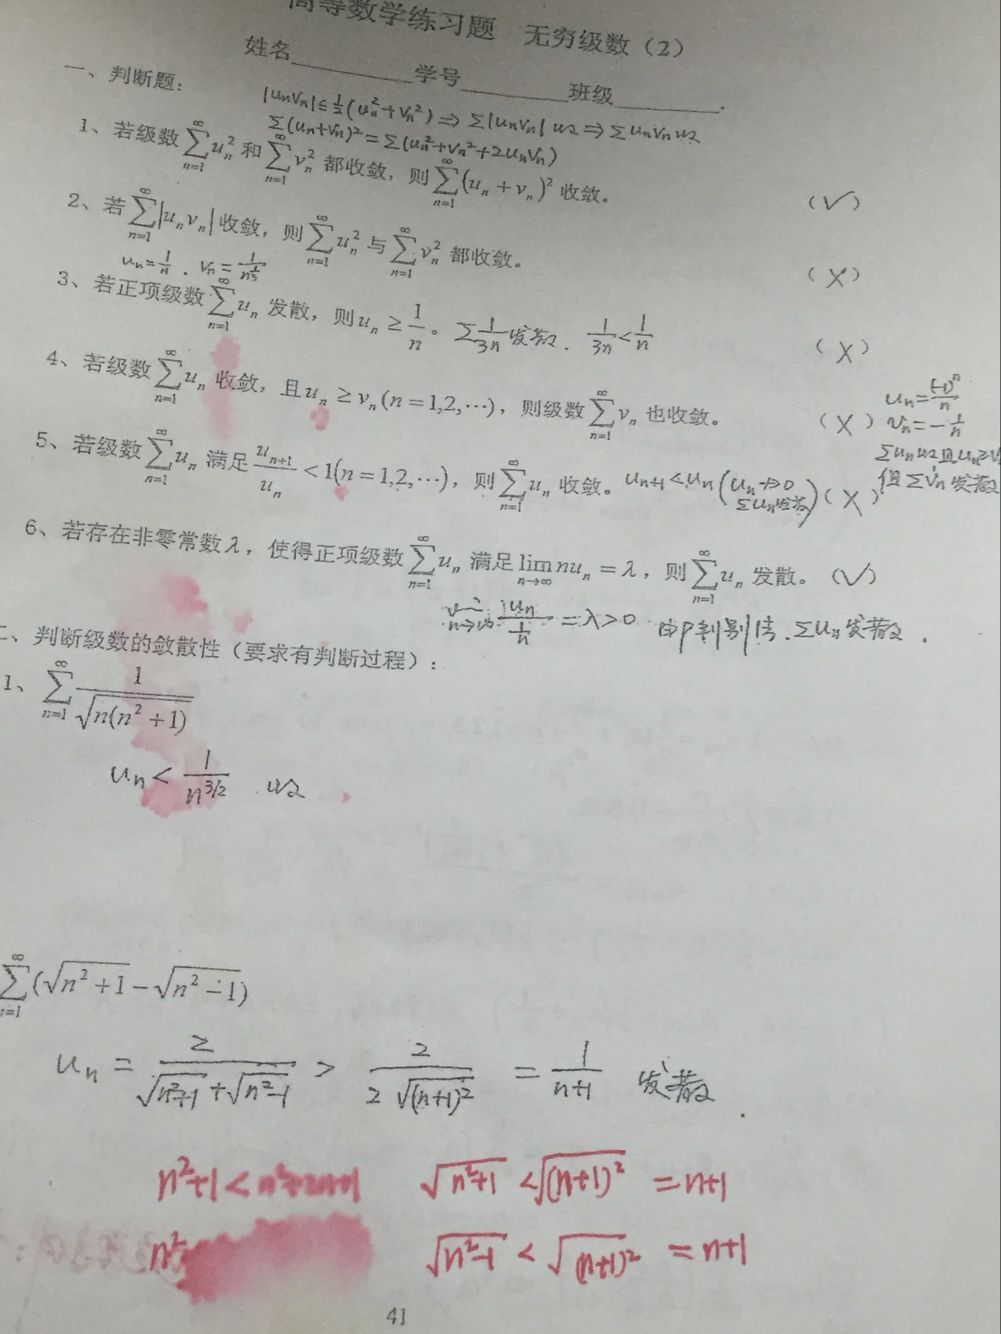 高等数学练习题 无穷级数（2）
姓名 学号 班级 .
一、判断题：
|uₙvₙ| ≤ ½(uₙ²+vₙ²) ⇒ Σ|uₙvₙ| 收敛 ⇒ Σuₙvₙ 收敛
Σ(uₙ+vₙ)² = Σ(uₙ²+vₙ²+2uₙvₙ)
1、若级数 \sum_{n=1}^{∞} uₙ² 和 \sum_{n=1}^{∞} vₙ² 都收敛，则 \sum_{n=1}^{∞} (uₙ + vₙ)² 收敛。 （√）
2、若 \sum_{n=1}^{∞} |uₙvₙ| 收敛，则 \sum_{n=1}^{∞} uₙ² 与 \sum_{n=1}^{∞} vₙ² 都收敛。 （X）
uₙ = 1/n . vₙ =
3、若正项级数 \sum_{n=1}^{∞} uₙ 发散，则 uₙ ≥ 1/n。 Σ 1/3n 发散. 1/3n < 1/n （X）
4、若级数 \sum_{n=1}^{∞} uₙ 收敛，且 uₙ ≥ vₙ (n = 1,2,⋯)，则级数 \sum_{n=1}^{∞} vₙ 也收敛。 （X）
uₙ = (-1)ⁿ/n
vₙ = -1/n
Σuₙ 收敛且 uₙ ≥ v
但 Σvₙ 发散
5、若级数 \sum_{n=1}^{∞} uₙ 满足 uₙ₊₁/uₙ < 1 (n = 1,2,⋯)，则 \sum_{n=1}^{∞} uₙ 收敛。 uₙ₊₁ < uₙ (uₙ ↛ 0 Σuₙ 发散) （X）
6、若存在非零常数 λ，使得正项级数 \sum_{n=1}^{∞} uₙ 满足 \lim_{n→∞} nuₙ = λ，则 \sum_{n=1}^{∞} uₙ 发散。（√）
n→∞ uₙ/(1/n) = λ > 0 由P判别法. Σuₙ 发散.
二、判断级数的敛散性（要求有判断过程）：
1、\sum_{n=1}^{∞} 1/√(n(n² + 1))
uₙ < 1/n^{3/2} 收敛
\sum_{n=1}^{∞} (√(n² + 1) − √(n² − 1))
uₙ = 2/(√(n²+1) + √(n²-1)) > 2/(2√((n+1)²)) = 1/(n+1) 发散.
n²+1 < n²+2n+1 √(n²+1) < √((n+1)²) = n+1
n²- √(n²-1) < √((n+1)²) = n+1
41